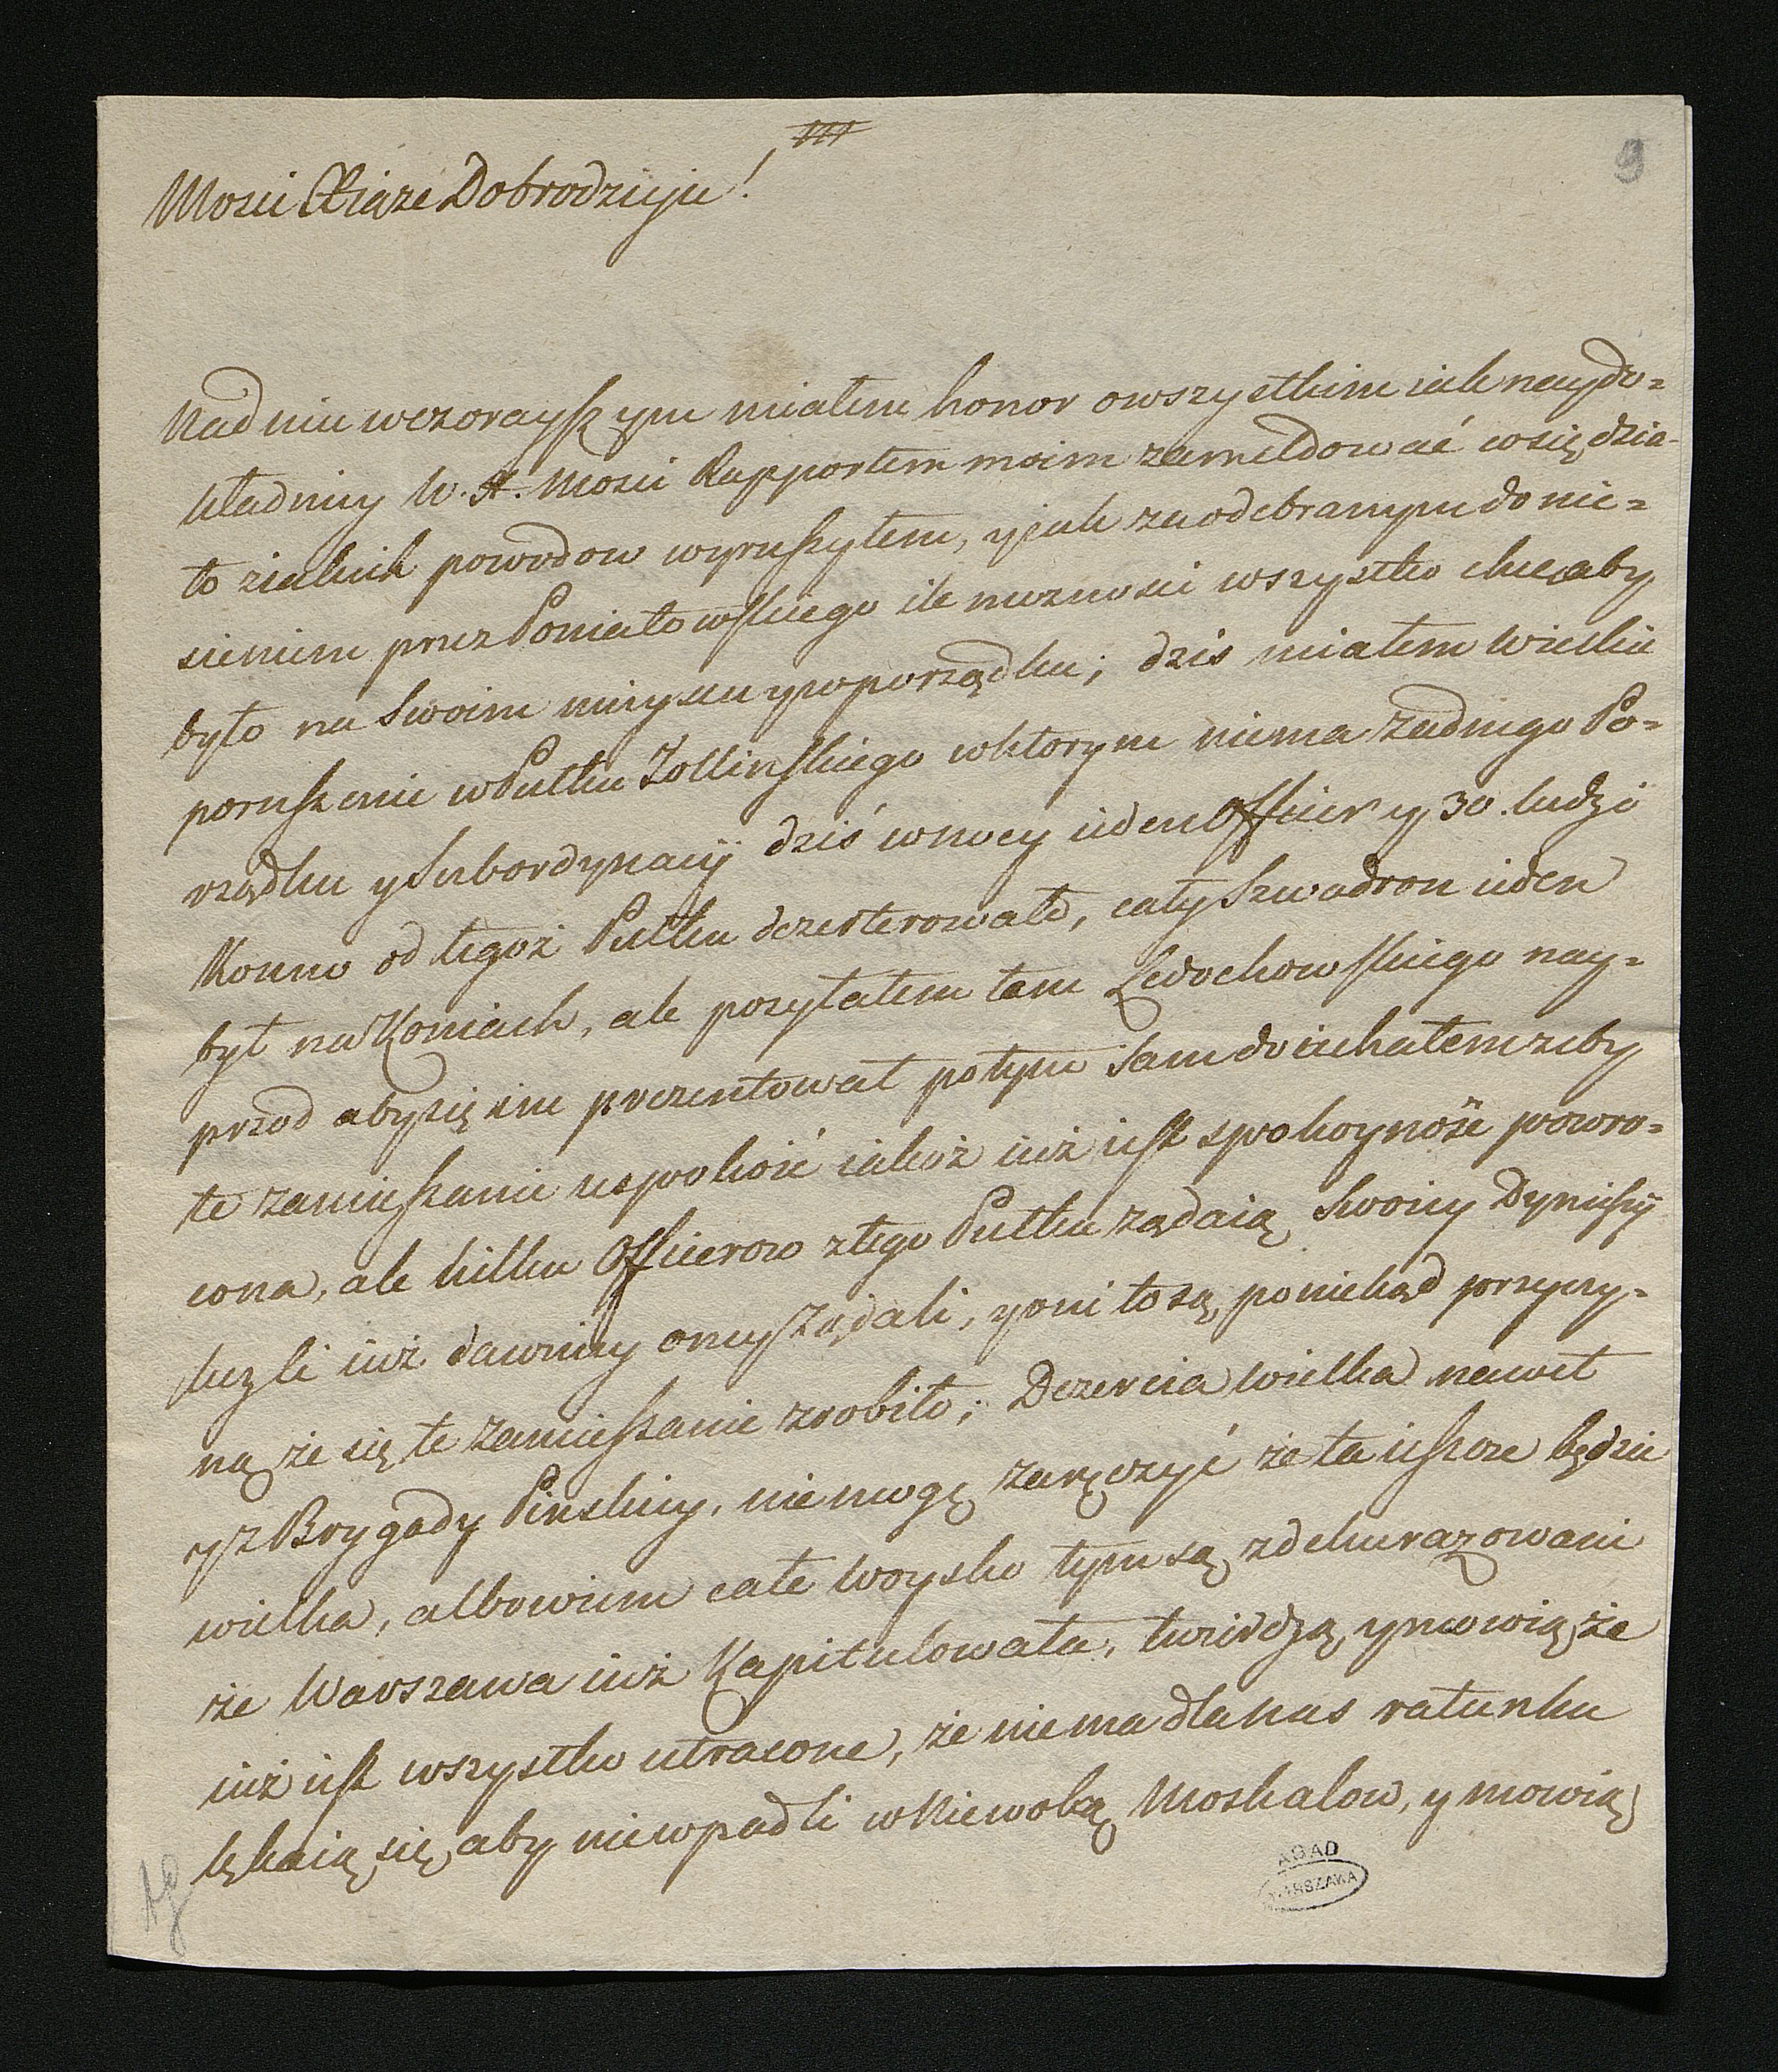 9
Mosci Xiąze Dobrodzieju!
Nadniu wczorayszym miałem honor owszystkim iak naydo=
kładniey W. X. Mosci Rapportem moim zameldować cosię dzia-
ło ziakich powodow wyruszyłem, yiak zaodebranym donie=
sieniem przez Poniatowskiego ile moznosci wszystko chcę aby
było na Swoim mieyscu ywporządku; dzis miałem Wielkie
poruszenie wPułku wktorym niema zadnego Po=
rządku ySubordynacyi dziś wnocy ieden Officier y 30. ludzi
Konno od tegoż Pułku dezerterowało, cały Szwadron ieden
był na Koniach, ale posyłałem tam Ledochowskiego nay=
przod abysię im prezentował potym Sam doiechałem zeby
te zamieszanie uspokoić iakoż iuż iest spokoyność powro=
cona, ale kilku Officerow ztego Pułku ządaią swoiey Dymissyi
iuż dawniey oney ządali, yoni to są poniekąd przyczy=
ną że się te zamieszanie zrobiło; Dezercia wielka nawet
yz Brygady Pinskiey, niemogę zaręczyć że ta ieszcze będzie
wielka, albowiem całe Woysko tym są zdekurazowani
że Warszawa iuż Kapitulowała, twierdzą ymowią że
iuż iest wszystko utracone, że niema dla nas ratunku
lękaią się aby niewpadli wNiewolą Moskalow, y mowią
AGAD
WARSZAWA